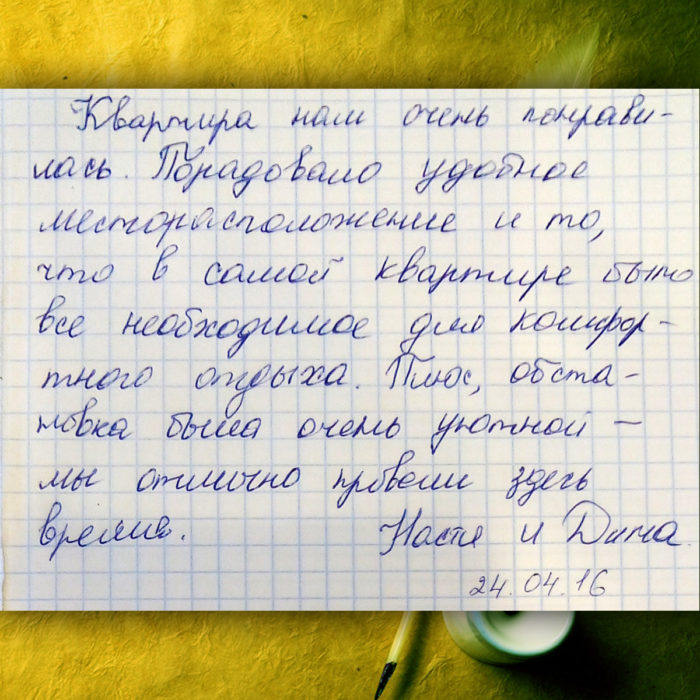 Квартира нам очень понрави-
лась. Порадовало удобное
месторасположение и то,
что в самой квартире было
все необходимое для комфор-
тного отдыха. Плюс, обста-
новка была очень уютной —
мы отлично провели здесь
время. Настя и Дима.
24.04.16